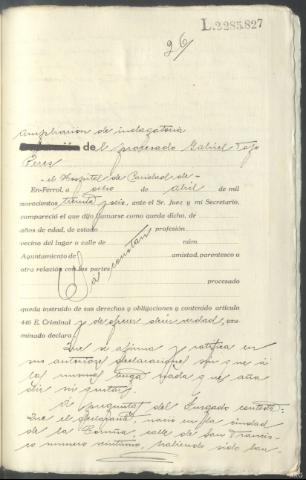 L.2285.827
26/
Ampliacion de indagatoria
del procesado Gabriel Tojo
Perez
el Hospital de Caridad de
En Ferrol, a ocho de abril de mil
novecientos treinta y seis, ante el Sr. Juez y mi Secretario,
compareció el que dijo llamarse como queda dicho, de
años de edad, de estado profesión
vecino del lugar o calle de núm.
Ayuntamiento de amistad, parentesco a
otra relación con las partes
procesado
Ya constan
queda instruido de sus derechos y obligaciones y contenido artículo
446 E. Criminal y de decir verdad, pro-
minado declara:
Que se afirma y ratifica en
su anterior declaracion sin que á
la misma tenga nada que aña
dir ni quitar.
A preguntas del Juzgado contesta:
Que el declarante, nacio en la ciudad
de la Coruña, calle de San Francis-
co numero veintiuno, habiendo sido bau